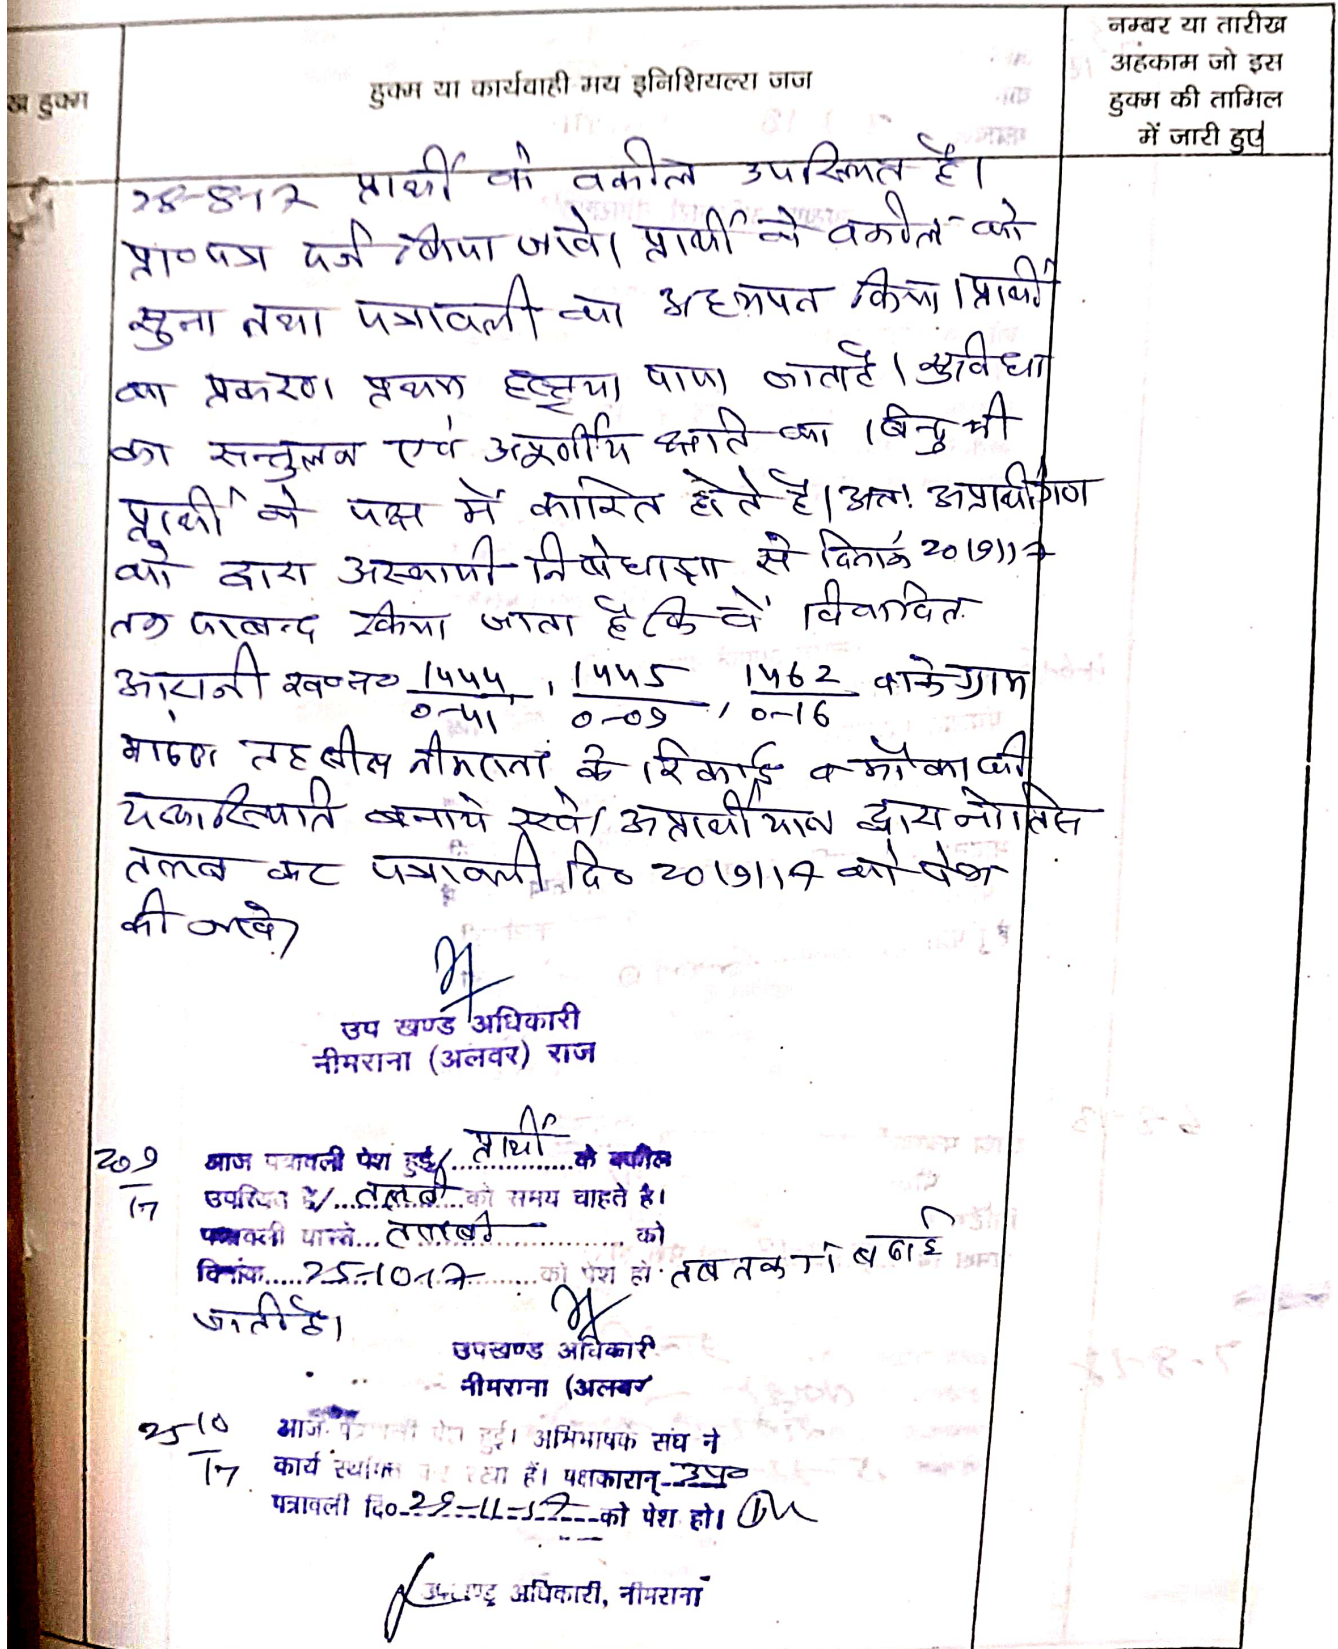 नम्बर या तारीख
अहकाम जो इस
हुक्म की तामिल
में जारी हुए
हुक्म या कार्यवाही मय इनिशियल्स जज
ख हुक्म
28-8-17 प्रार्थी के वकील उपस्थित है।
प्रा०पत्र दर्ज किया जावे। प्रार्थी के वकील को
सुना तथा पत्रावली का अध्ययन किया। प्रार्थी
का प्रकरण प्रथम दृष्टया पाया जाता है। सुविधा
का सन्तुलन एवं अपूर्णीय क्षति का बिन्दु भी
प्रार्थी के पक्ष में कारित होते है। अतः अप्रार्थीगण
को द्वारा अस्थायी निषेधाज्ञा से दिनांक 20/9/17
तक पाबन्द किया जाता है कि वें विवादित
आराजी ख०न० 1444/0-41, 1445/0-09, 1462/0-16 वाके ग्राम
तहसील नीमराना के रिकार्ड व मौका की
यथास्थिति बनाये रखे। अप्रार्थीयान द्वारा नोटिस
तलब कर पत्रावली दि० 20/9/17 को पेश
की जावे।
उप खण्ड अधिकारी
नीमराना (अलवर) राज
20 9/17 आज पत्रावली पेश हुई। प्रार्थी के वकील
उपस्थित है। तलबी को समय चाहते है।
पत्रावली वास्ते तलबी को
दिनांक 25-10-17 को पेश हो तब तक बढाई
जाती है।
उपखण्ड अधिकारी
नीमराना (अलवर
25 10/17 आज पत्रावली पेश हुई। अभिभाषक संघ ने
कार्य स्थगित कर रखा हैं। पक्षकारान् उप०
पत्रावली दि० 29-11-17 को पेश हो।
उपखण्ड अधिकारी, नीमराना